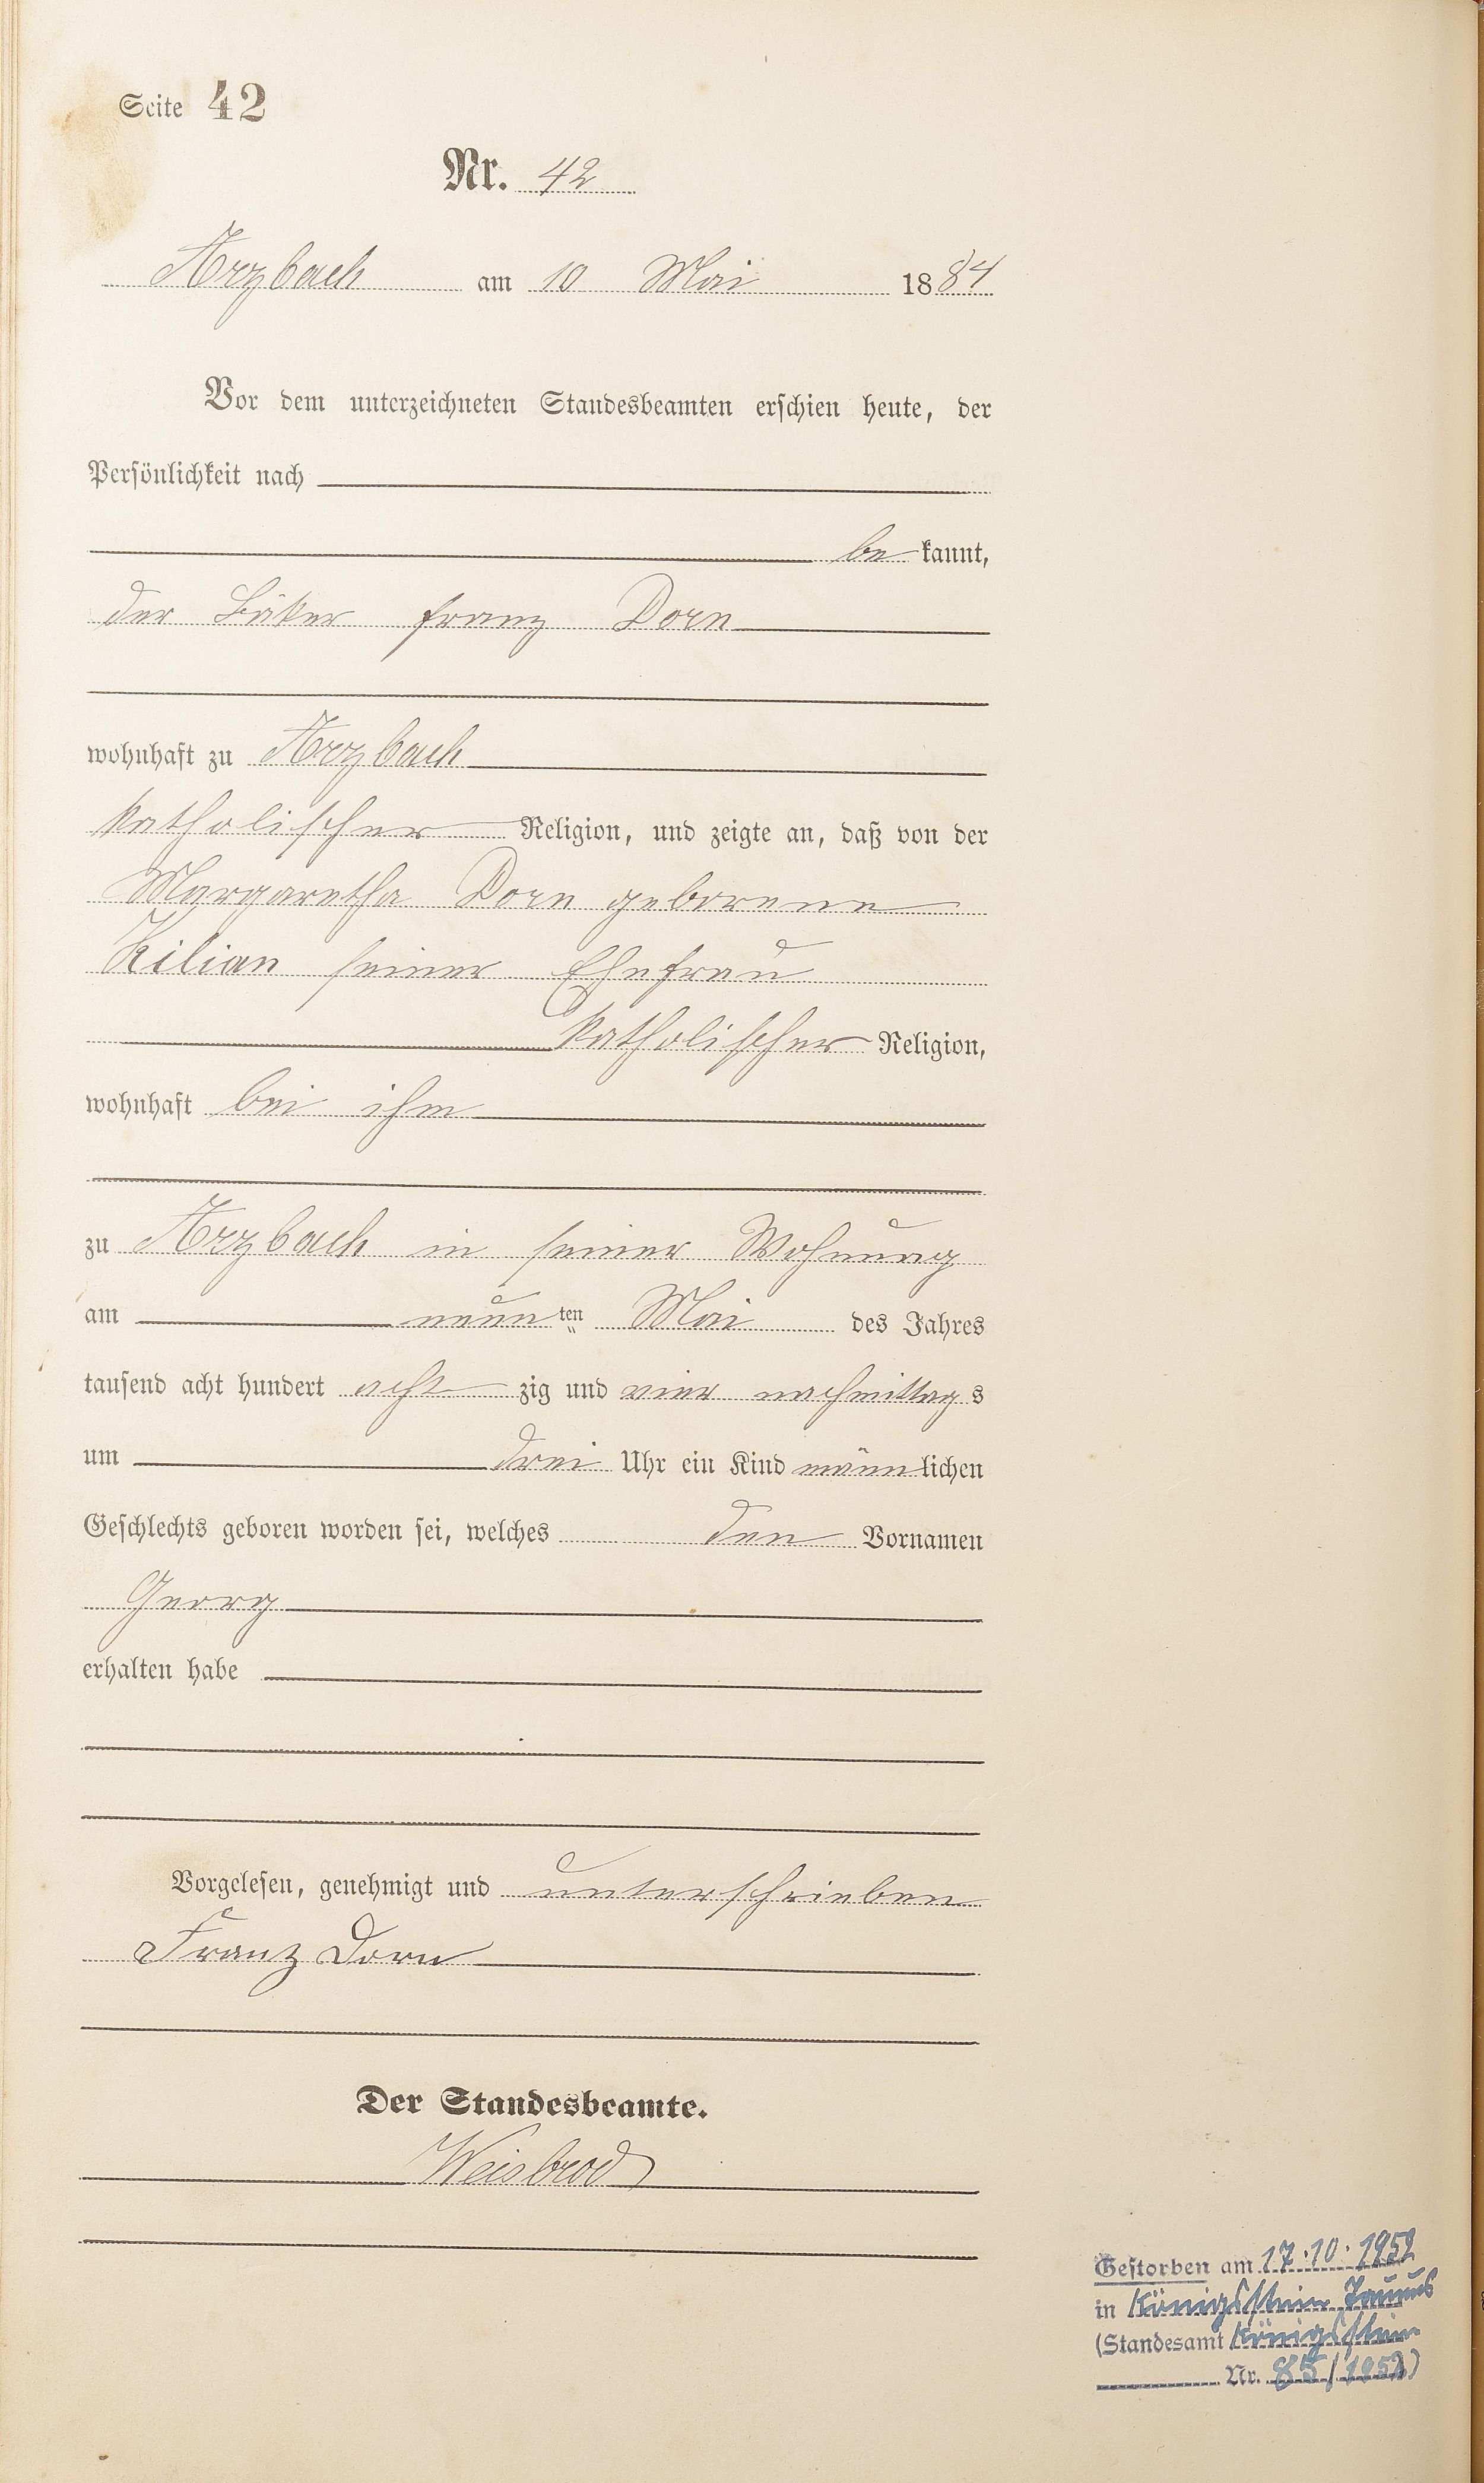 Seite 42
Nr. 42
Arzbach am 10 Mai 1884
Vor dem unterzeichneten Standesbeamten erschien heute, der
Persönlichkeit nach
be kannt,
der Bäker Franz Dorn
wohnhaft zu Arzbach
katholischer Religion, und zeigte an, daß von der
Margaretha Dorn geborene
Kilian seiner Ehefrau
katholischer Religion,
wohnhaft bei ihm
zu Arzbach in seiner Wohnung
am neun ten Mai des Jahres
tausend acht hundert acht zig und vier nachmittag s
um drei Uhr ein Kind männ lichen
Geschlechts geboren worden sei, welches den Vornamen
Georg
erhalten habe
Vorgelesen, genehmigt und unterschrieben
Franz Dorn
Der Standesbeamte.
Weisbrod
Gestorben am 17.10.1952
in Königstein Taunus
(Standesamt Königstein
Nr. 85/1952)